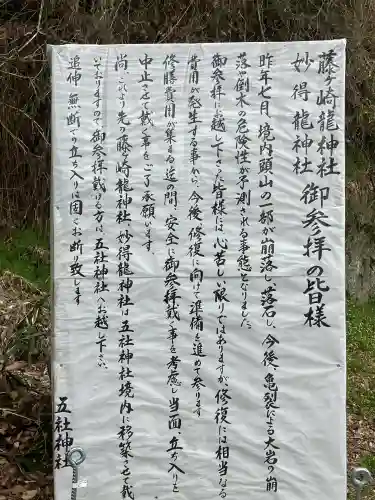 藤ヶ崎龍神社
妙得龍神社
御参拝の皆様
昨年七月、境内頭山の一部が崩落し落石し、今後、亀裂による大岩の崩
落や倒木の危険性が予測される事態となりました。
御参拝にお越し下さった皆様には心苦しい限りではありますが、修復には相当なる
費用が発生する事から、今後、修復に向けて準備を進めて参ります
修繕費用が集まる迄の間、安全に御参拝戴く事を考慮し当面、立ち入りを
中止させて戴く事をご了承願います。
尚、これより先の藤ヶ崎龍神社、妙得龍神社は五社神社境内に移築させて戴
いておりますので御参拝戴ける方は、五社神社へお越し下さい。
追伸 無断での立ち入りは固くお断り致します
五社神社